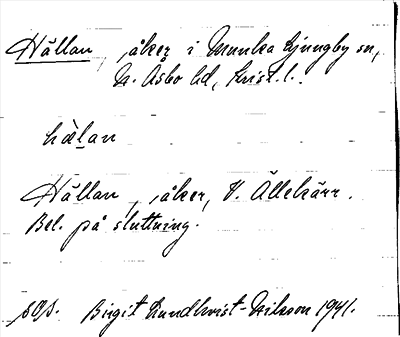 Hällan, åker i Munka Ljungby sn,
N. Åsbo hd, Krist. l.
hàlan
Hällan, åker, V. Ällekärr.
Bel. på sluttning.
SOS. Birgit Lundkvist-Nilsson 1941.